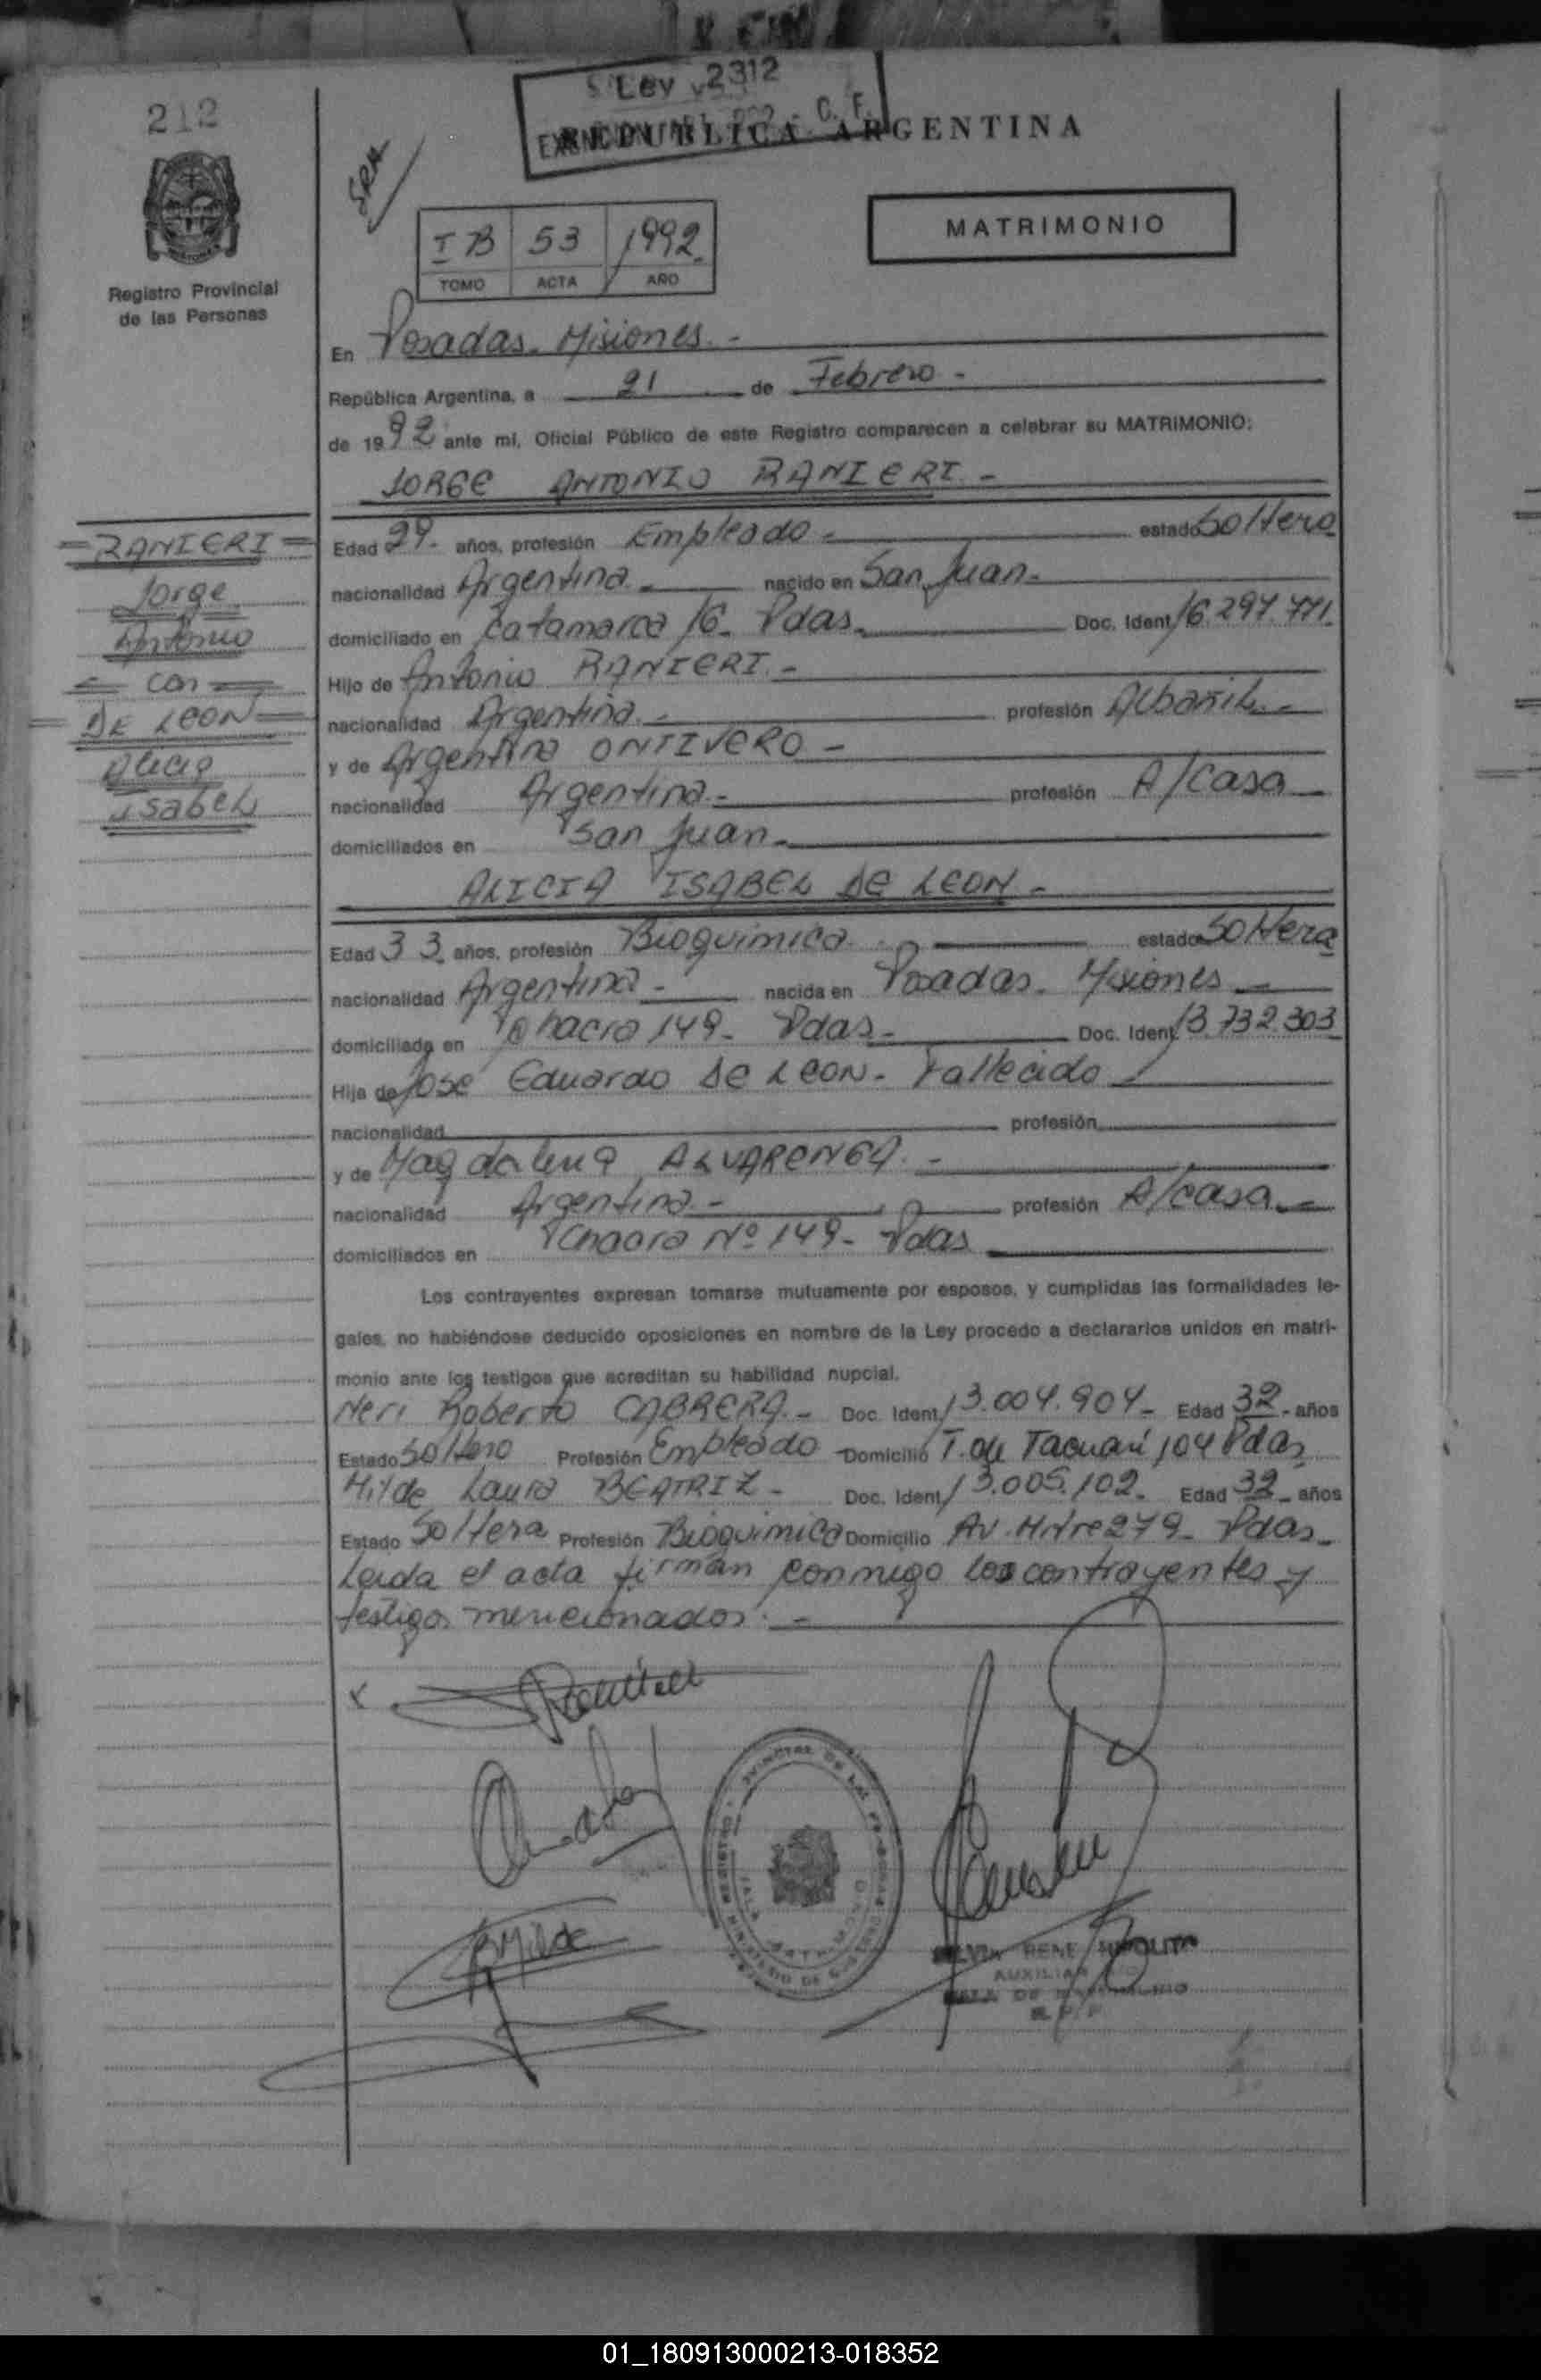 212
Ley 2312
EXENCION ART. C. F.
REPUBLICA ARGENTINA
MATRIMONIO
I B 53 1992
TOMO ACTA AÑO
Registro Provincial
de las Personas
En Posadas. Misiones. -
República Argentina, a 21 de Febrero -
de 1992 ante mí, Oficial Público de este Registro comparecen a celebrar su MATRIMONIO:
JORGE ANTONIO RANIERI. -
= RANIERI =
Jorge
Antonio
= con =
= DE LEON =
Alicia
Isabel
Edad 29. años, profesión Empleado - estado Soltero
nacionalidad Argentina. - nacido en San Juan. -
domiciliado en Catamarca 16. Pdas. Doc. Ident. 16.297.771.
Hijo de Antonio RANIERI. -
nacionalidad Argentina. - profesión Albañil. -
y de Argentina ONTIVERO -
nacionalidad Argentina. - profesión A/casa
domiciliados en San Juan. -
ALICIA ISABEL DE LEON. -
Edad 33. años, profesión Bioquimica. estado Soltera
nacionalidad Argentina - nacida en Posadas. Misiones -
domiciliada en Chacra 149. Pdas. - Doc. Ident. 13.732.303
Hija de José Eduardo DE LEON. Fallecido
nacionalidad profesión
y de Magdalena ALVARENGA. -
nacionalidad Argentina. - profesión A/casa. -
domiciliados en Chacra Nº 149. Pdas
Los contrayentes expresan tomarse mutuamente por esposos, y cumplidas las formalidades le-
gales, no habiéndose deducido oposiciones en nombre de la Ley procedo a declararlos unidos en matri-
monio ante los testigos que acreditan su habilidad nupcial.
Neri Roberto CABRERA. - Doc. Ident. 13.004.904 - Edad 32 - años
Estado Soltero Profesión Empleado Domicilio T. de Tacuarí 104 Pdas
Hilde Laura BEATRIZ - Doc. Ident. 13.005.102. Edad 32 - años
Estado Soltera Profesión Bioquimica Domicilio Av. Mitre 279 - Pdas. -
Leida el acta firman conmigo los contrayentes y
testigos mencionados. -
REGISTRO PROVINCIAL DE LAS PERSONAS
MINISTERIO DE GOBIERNO
SALA MATRIMONIO
SILVIA RENE
AUXILIAR
SALA DE MATRIMONIO
R. P. P.
01_180913000213-018352